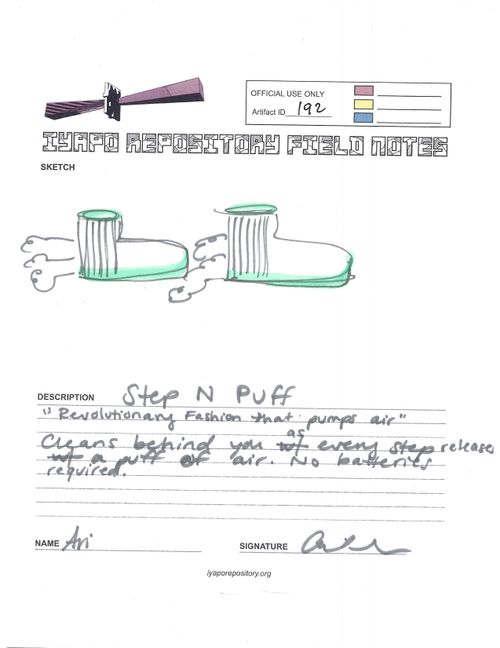 OFFICIAL USE ONLY
Artifact ID 192
IYAPO REPOSITORY FIELD NOTES
SKETCH
DESCRIPTION Step N Puff
"Revolutionary Fashion that pumps air"
Cleans behind you as every step releases
a puff of air. No batteries
required.
NAME Ari
SIGNATURE
iyaporepository.org